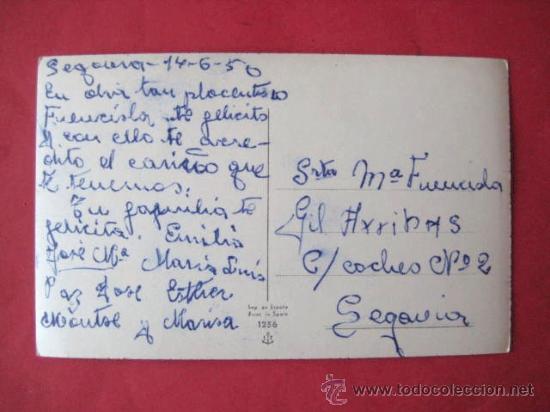 Segovia-14-6-50
En dia tan placentero
Fuencisla te felicito
y con ello te acre-
dito el cariño que
te tenemos.
Tu familia te
felicita. Emilia
José Mª Maria Luis
Paz Jose Esther
Montse y Marisa
Imp. en España
Print. in Spain
1256
Srta Mª Fuencisla
Gil Arribas
C/ coches Nº 2
Segovia
www.todocoleccion.net